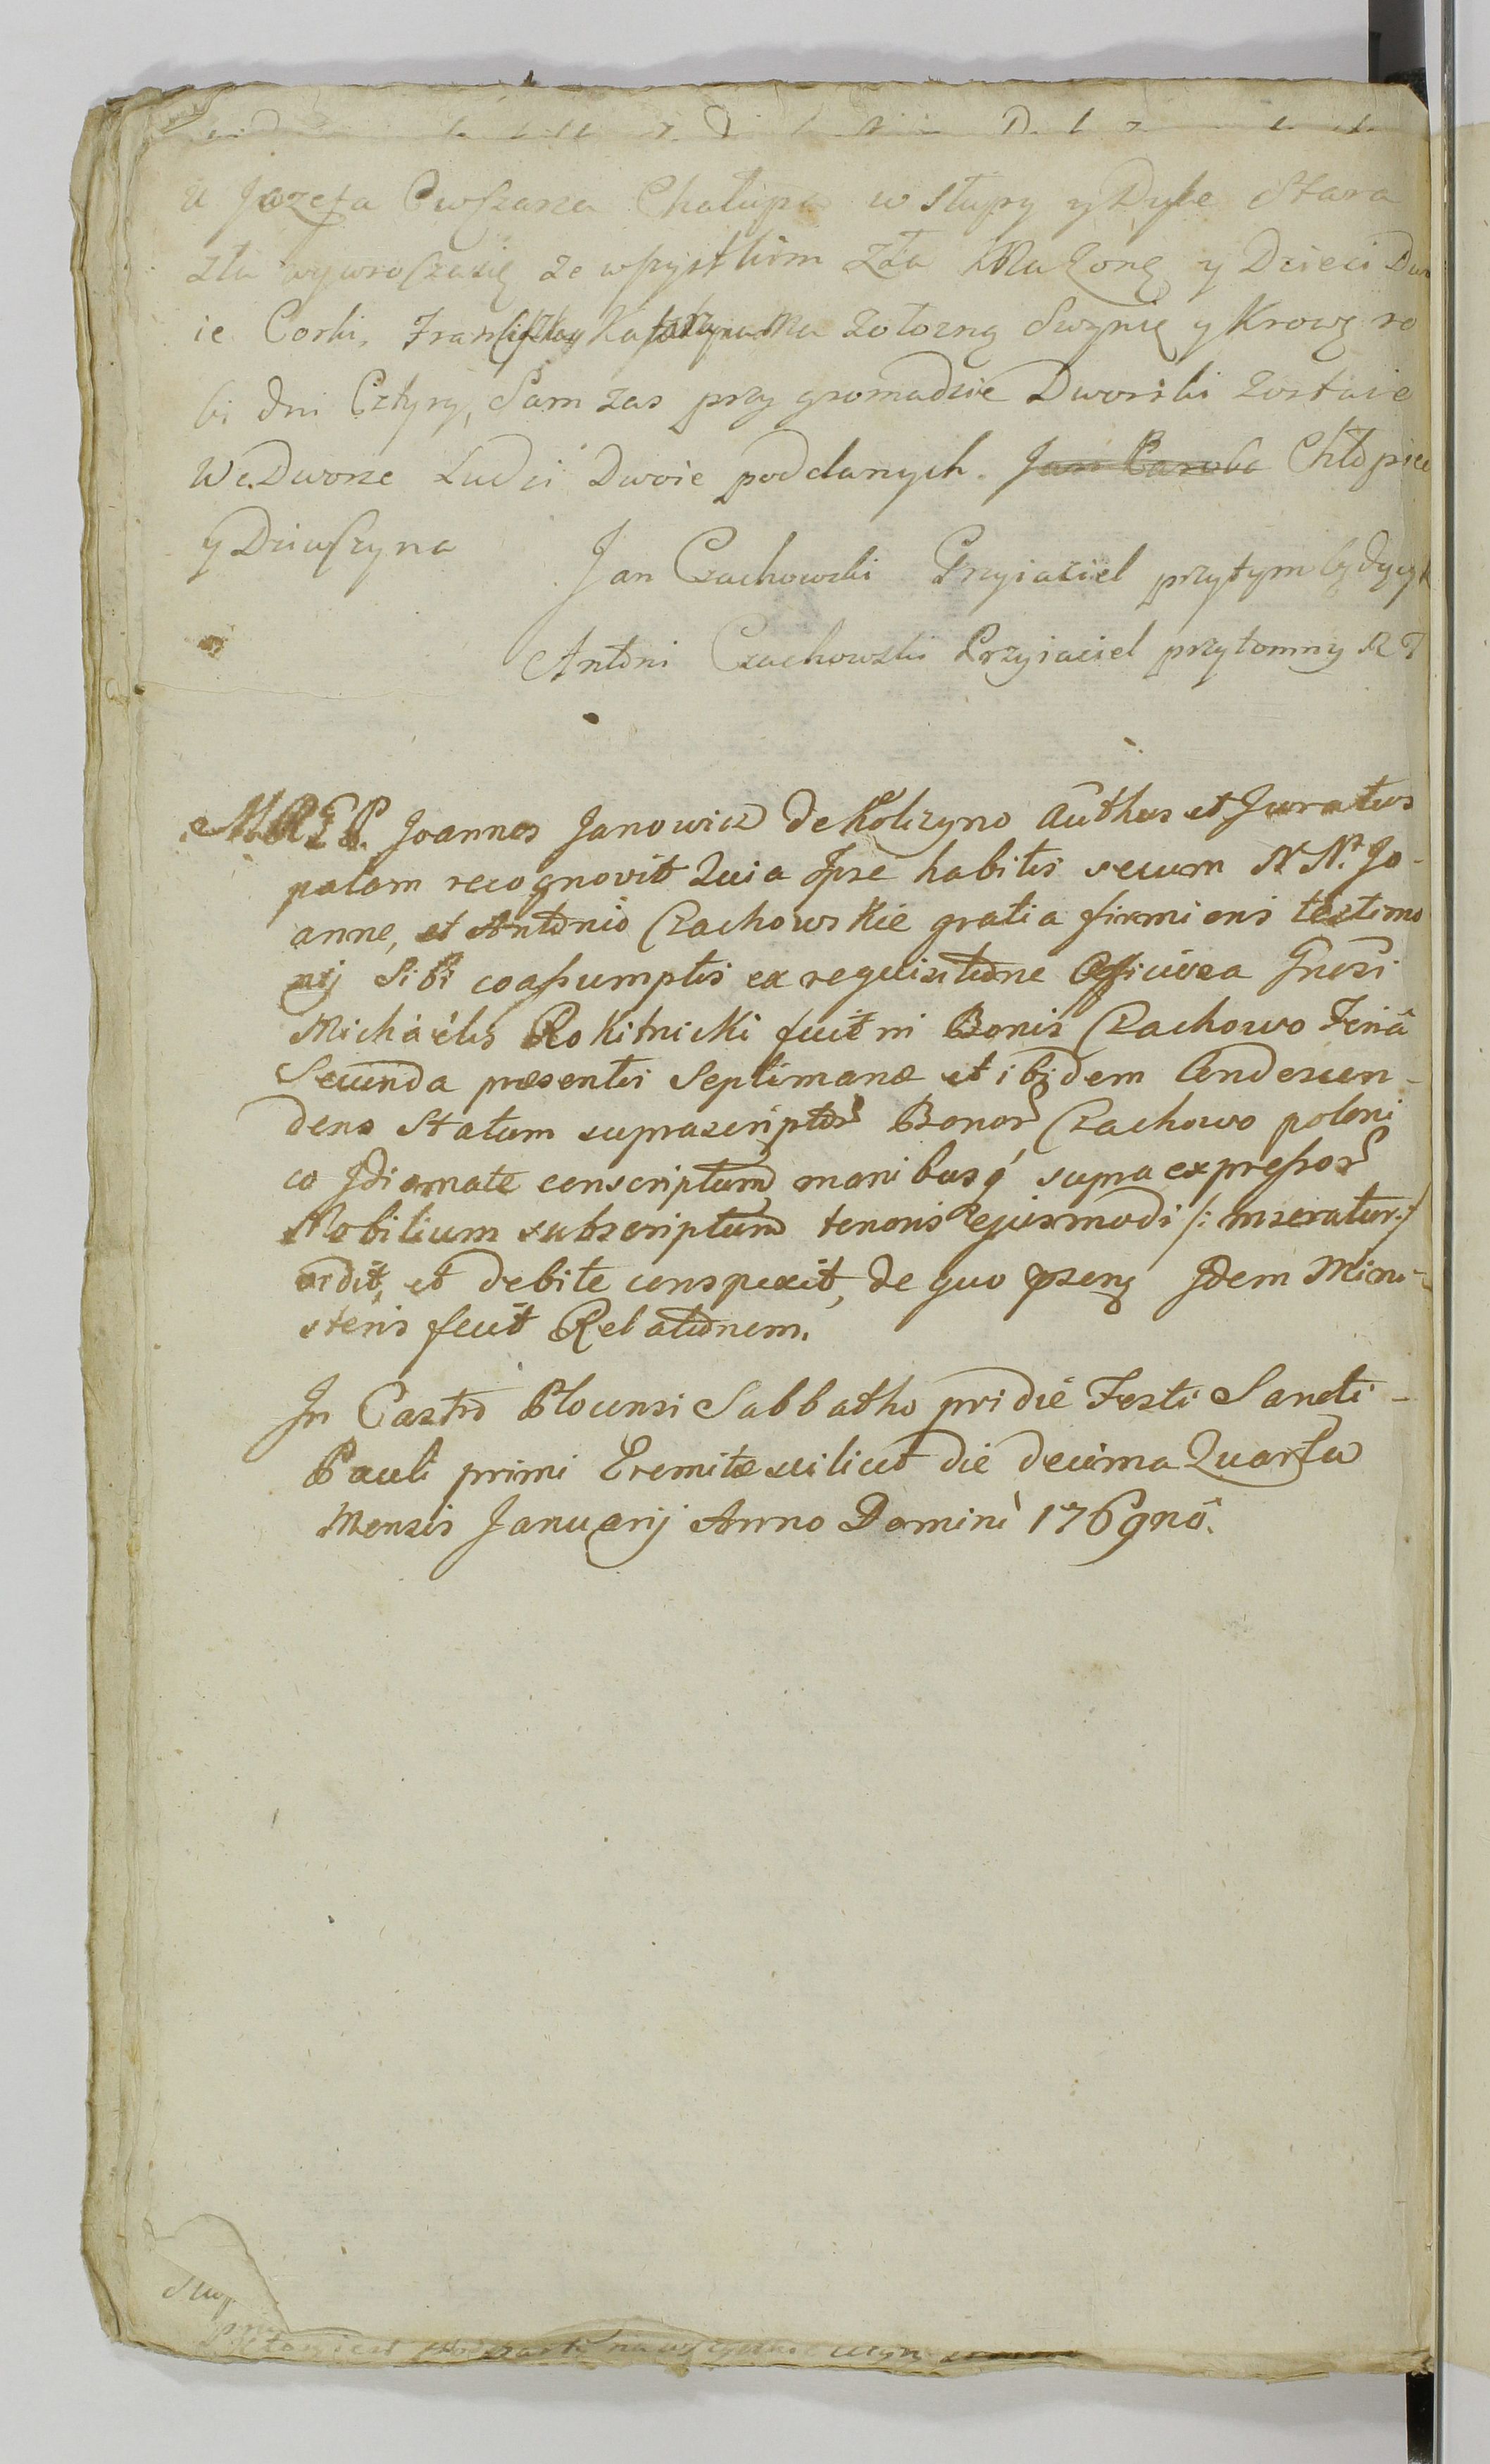 u Jozefa Cwszana Chałupa w słupy y Dyle Stara
zła wywroszasię ze wszystkim zła Ma Zonę y Dzieci Dw
ie Corki, Franciszkę y Katarzynę Ma Zołozną Swynię y Krowę ro
bi dni Cztyry, Sam zas przy gromadzie Dworski zostaie
We Dworze Ludzi Dwoie poddanych. Chłopiec
y Dziwszyna
Jan Czachowski Przyiaciel przytym będący
Antoni Czachowski Przyiaciel przytomny
Joannes Janowicz de Kolczyno Authus et Juratus
palam recognovit Quia Ipse habitis secum N N. Jo-
anne, et Antonio Czachowskie gratia firmioris testimo
nij sibi coassumptis ex requisitione Officiosa Gnosi
Michaelis Rokitnicki fuit in Bonis Czachowo Feria
Secunda præsentis Septimanæ et ibidem Condescen-
dens Statum suprascriptor Bonor Czachowo poloni
co Idiomate conscriptum manibusq supra expressor
Nobilium subscriptum tenoris ejusmodi /: inseratur :/
vidit, et debite conspexit, de quo pseng Idem Mini-
steris fecit Relationem.
In Castro Plocensi Sabbatho pridie Festi Sancti-
Pauli primi Eremitæ scilicet die decima Quarta
Mensis Januarij Anno Domini 1769nô.